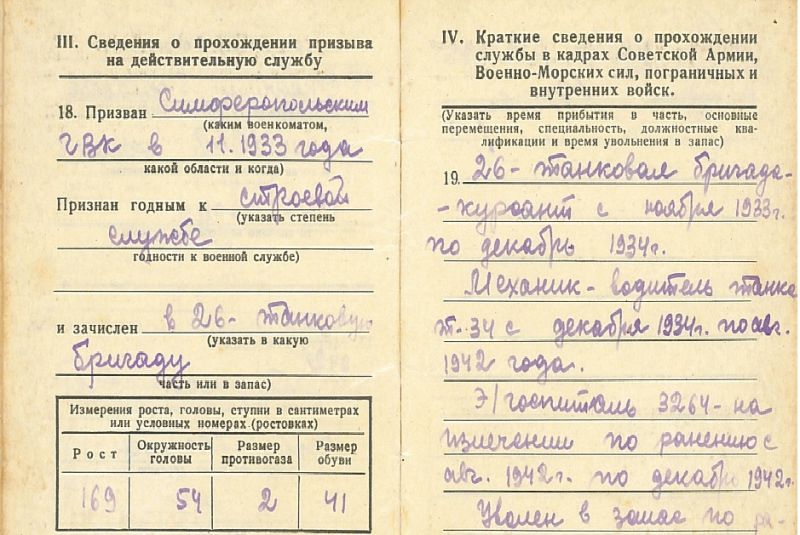 III. Сведения о прохождении призыва
на действительную службу
18. Призван Симферопольским
(каким военкоматом,
ГВК в 11.1933 года
какой области и когда)
Признан годным к строевой
(указать степень
службе
годности к военной службе)
и зачислен в 26- танковую
(указать в какую
бригаду
часть или в запас)
Измерения роста, головы, ступни в сантиметрах
или условных номерах (ростовках)
Рост Окружность головы Размер противогаза Размер обуви
169 54 2 41
IV. Краткие сведения о прохождении
службы в кадрах Советской Армии,
Военно-Морских сил, пограничных и
внутренних войск.
(Указать время прибытия в часть, основные
перемещения, специальность, должностные ква-
лификации и время увольнения в запас)
19. 26- танковая бригада-
- курсант с ноября 1933г.
по декабрь 1934г.
Механик- водитель танка
т-34 с декабря 1934г. по авг.
1942 года.
Э/госпиталь 3264- на
излечении по ранению с
авг. 1942г. по декабрь 1942г.
Уволен в запас по ра-